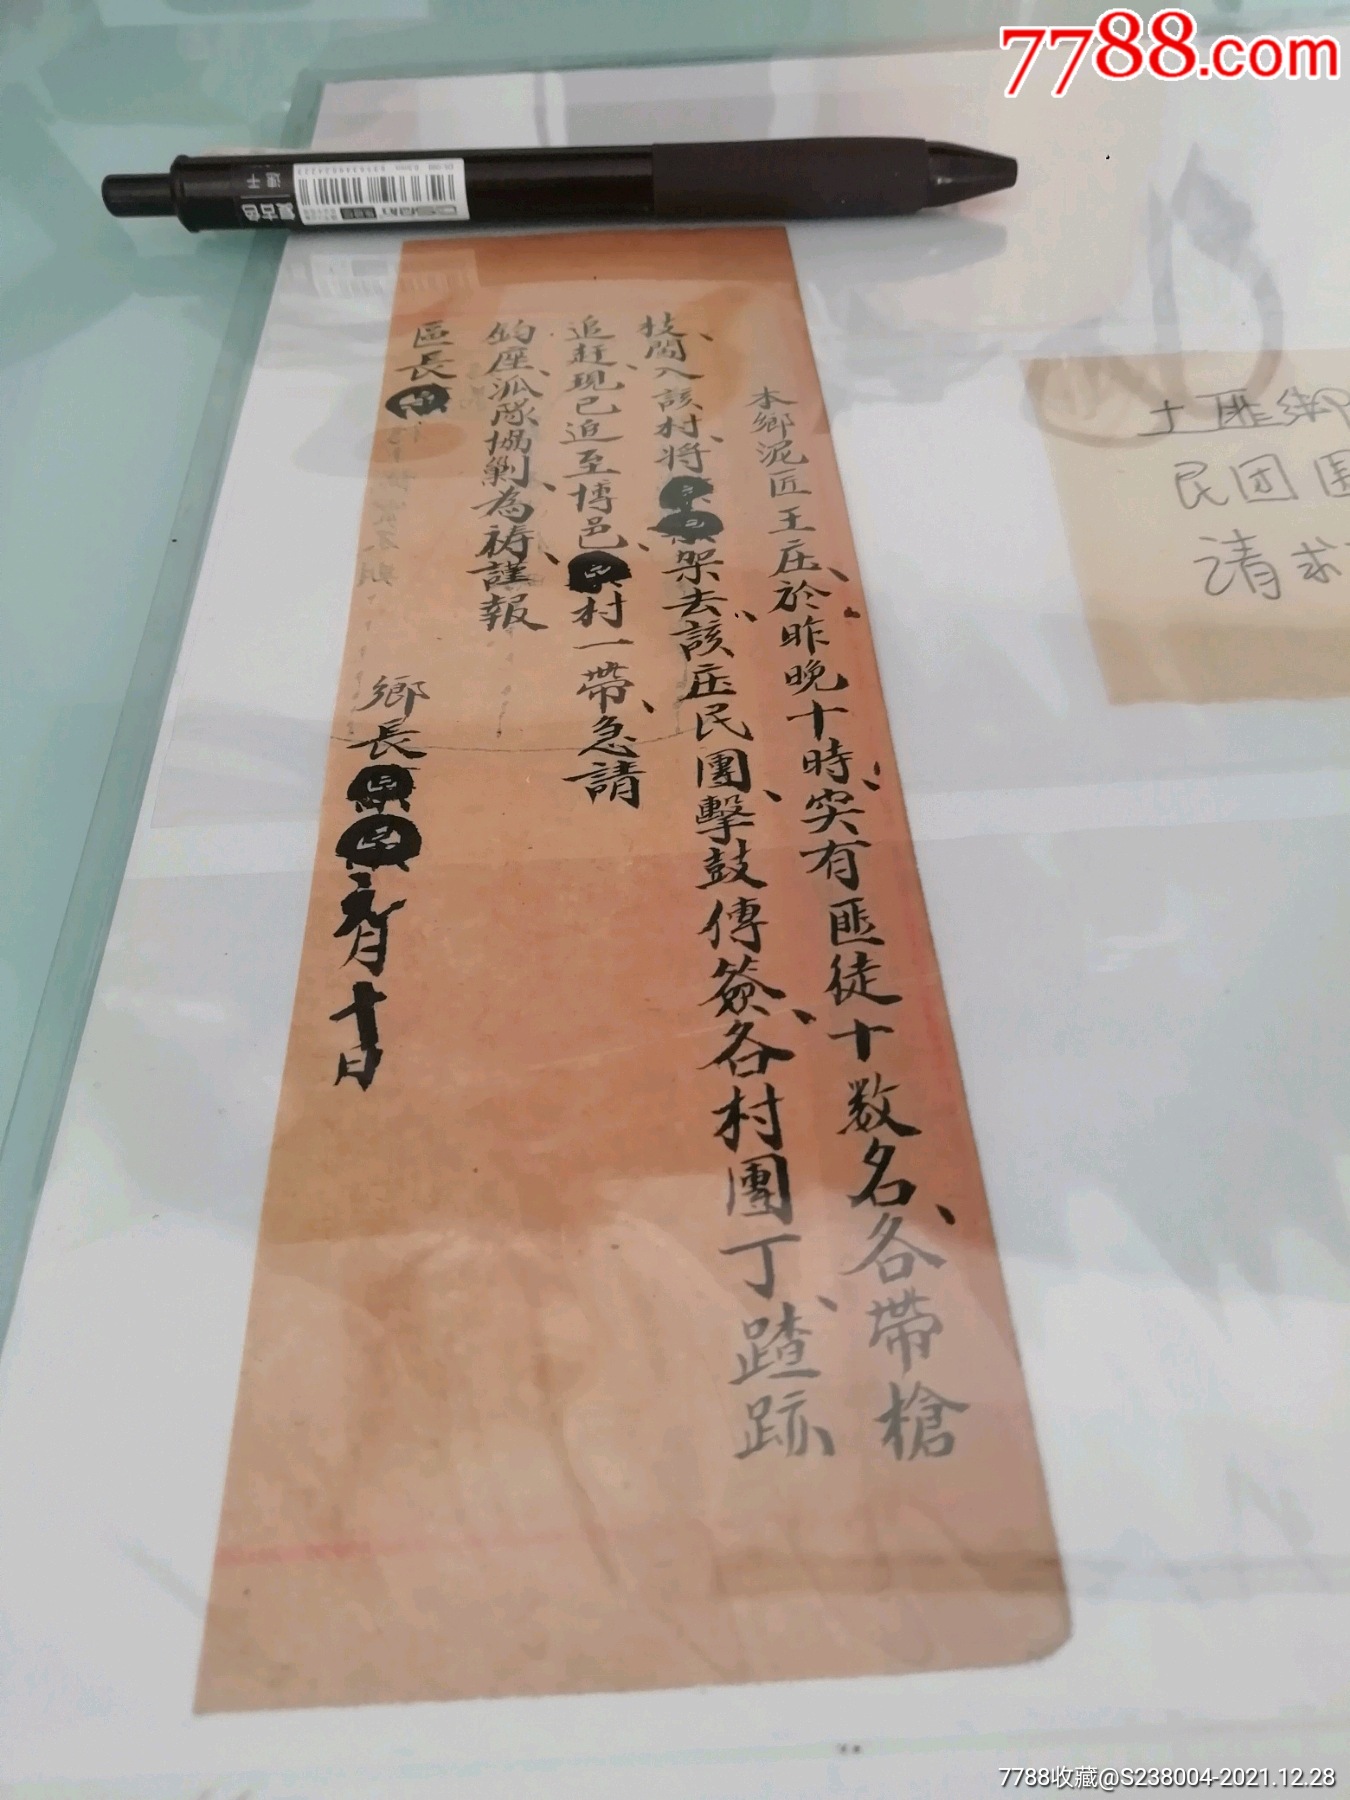 7788.com
本鄉泥匠王庄、於昨晚十時、突有匪徒十数名、各帶槍
枝、闖入該村、將架去、該庄民團、擊鼓傳簽、各村團丁、蹅跡、
追赶、現已追至博邑、村一帶、急請
鈞座、派隊協剿、為禱、謹報
區長
鄉長
元月十日
土匪绑
民团围
请求
复古色
7788收藏@S238004-2021.12.28